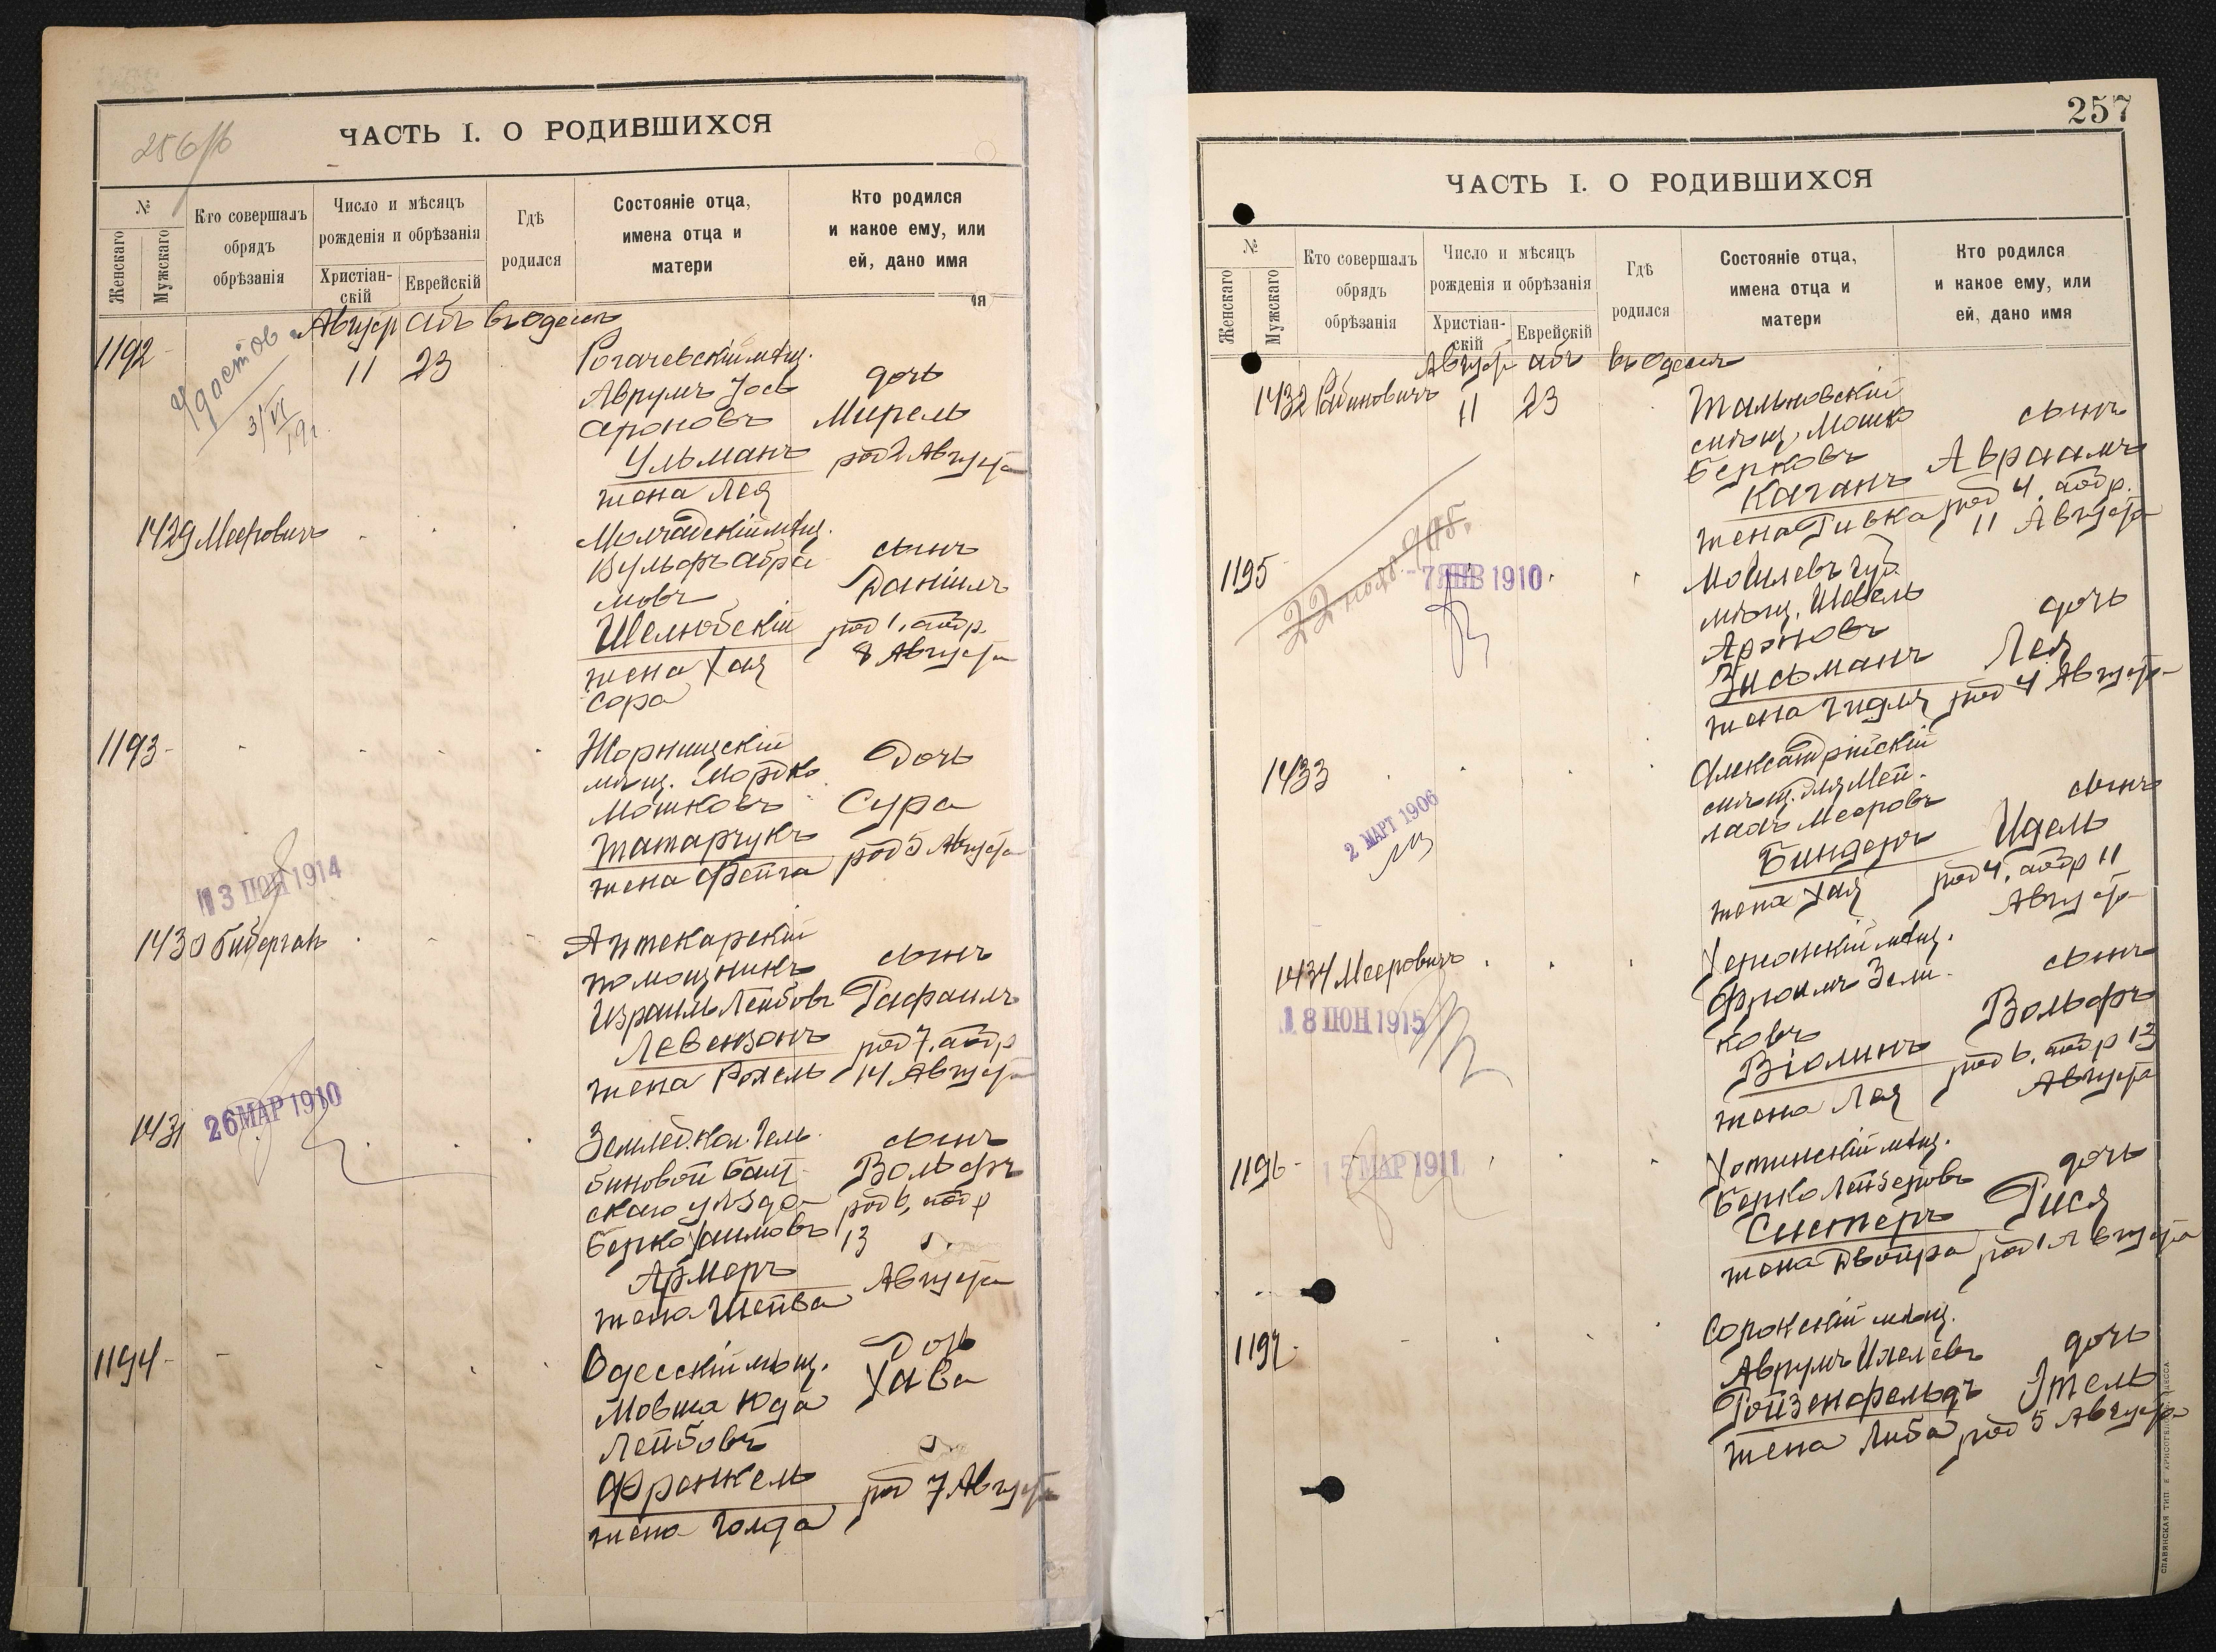 256об
ЧАСТЬ I. О РОДИВШИХСЯ
№
Женскаго
Мужскаго
Кто совершалъ
обрядъ
обрѣзанія
Число и мѣсяцъ
рожденія и обрѣзанія
Христіан-
скій
Еврейскій
Гдѣ
родился
Состояніе отца,
имена отца и
матери
Кто родился
и какое ему, или
ей, дано имя
Авгус Абъ въ Одессѣ
1192
Удостов.
3/VI
11 23
Рогачевскій мѣщ.
Аврумъ Іось
Ароновъ
Ульманъ
жена Лея
дочь
Мирель
род 2 Августа
1429 Мееровичъ
Молчадскій мѣщ.
Вульфъ Абра
мовъ
Шелюбскій
жена Хая
Сора
сынъ
Даніилъ
род 1, обр.
8 Августа
1193
Жорнищскій
мѣщ. Мордко
Мошковъ
Татарчукъ
жена Фейга
Дочь
Сура
род 5 Августа
13 ІЮН 1914
1430 Биберган
Аптекарскій
помощникъ
Израиль Лейбовъ
Левензонъ
жена Рохель
сынъ
Рафаилъ
род 7, обр
14 Августа
1431
26 МАР 1910
Землед. кол. Гель
биновой Балт
скаго уѣзда
Берко Хаимовъ
Армеръ
жена Шейва
сынъ
Вольфъ
род 6, обр
13
Августа
1194
Одесскій мѣщ.
Мовша Юда
Лейбовъ
Френкель
жена Голда
Дочь
Хава
род 7 Августа
257
ЧАСТЬ I. О РОДИВШИХСЯ
№
Женскаго
Мужскаго
Кто совершалъ
обрядъ
обрѣзанія
Число и мѣсяцъ
рожденія и обрѣзанія
Христіан-
скій
Еврейскій
Гдѣ
родился
Состояніе отца,
имена отца и
матери
Кто родился
и какое ему, или
ей, дано имя
Авгус Абъ въ Одессѣ
1432 Рабиновичъ
11 23
Тальновскій
мѣщ. Мошко
Берковъ
Каганъ
жена Ривка
сынъ
Авраамъ
род 4, обр.
11 Августа
22 нояб. 908.
1195
7 ЯНВ 1910
Могилевъ губ
мѣщ. Шевель
Ароновъ
Зисьманъ
жена Гидля
дочь
Лея
род 4 Августа
1433
2 МАРТ 1906
Александрійскій
мѣщ. Эля Мей
лахъ Мееровъ
Биндеръ
жена Хая
сынъ
Идель
род 4, обр 11
Августа
1434 Мееровичъ
18 ІЮН 1915
Херсонскій мѣщ.
Фроимъ Зели
ковъ
Віолинъ
жена Лея
сынъ
Вольфъ
род 6, обр 13
Августа
1196
15 МАР 1911
Хотинскій мѣщ.
Берко Лейзеровъ
Систеръ
жена Двойра
дочь
Рися
род 1 Августа
1197
Сорокскій мѣщ.
Аврумъ Ихелевъ
Ройзенфельдъ
жена Либа
дочь
Этель
род 5 Августа